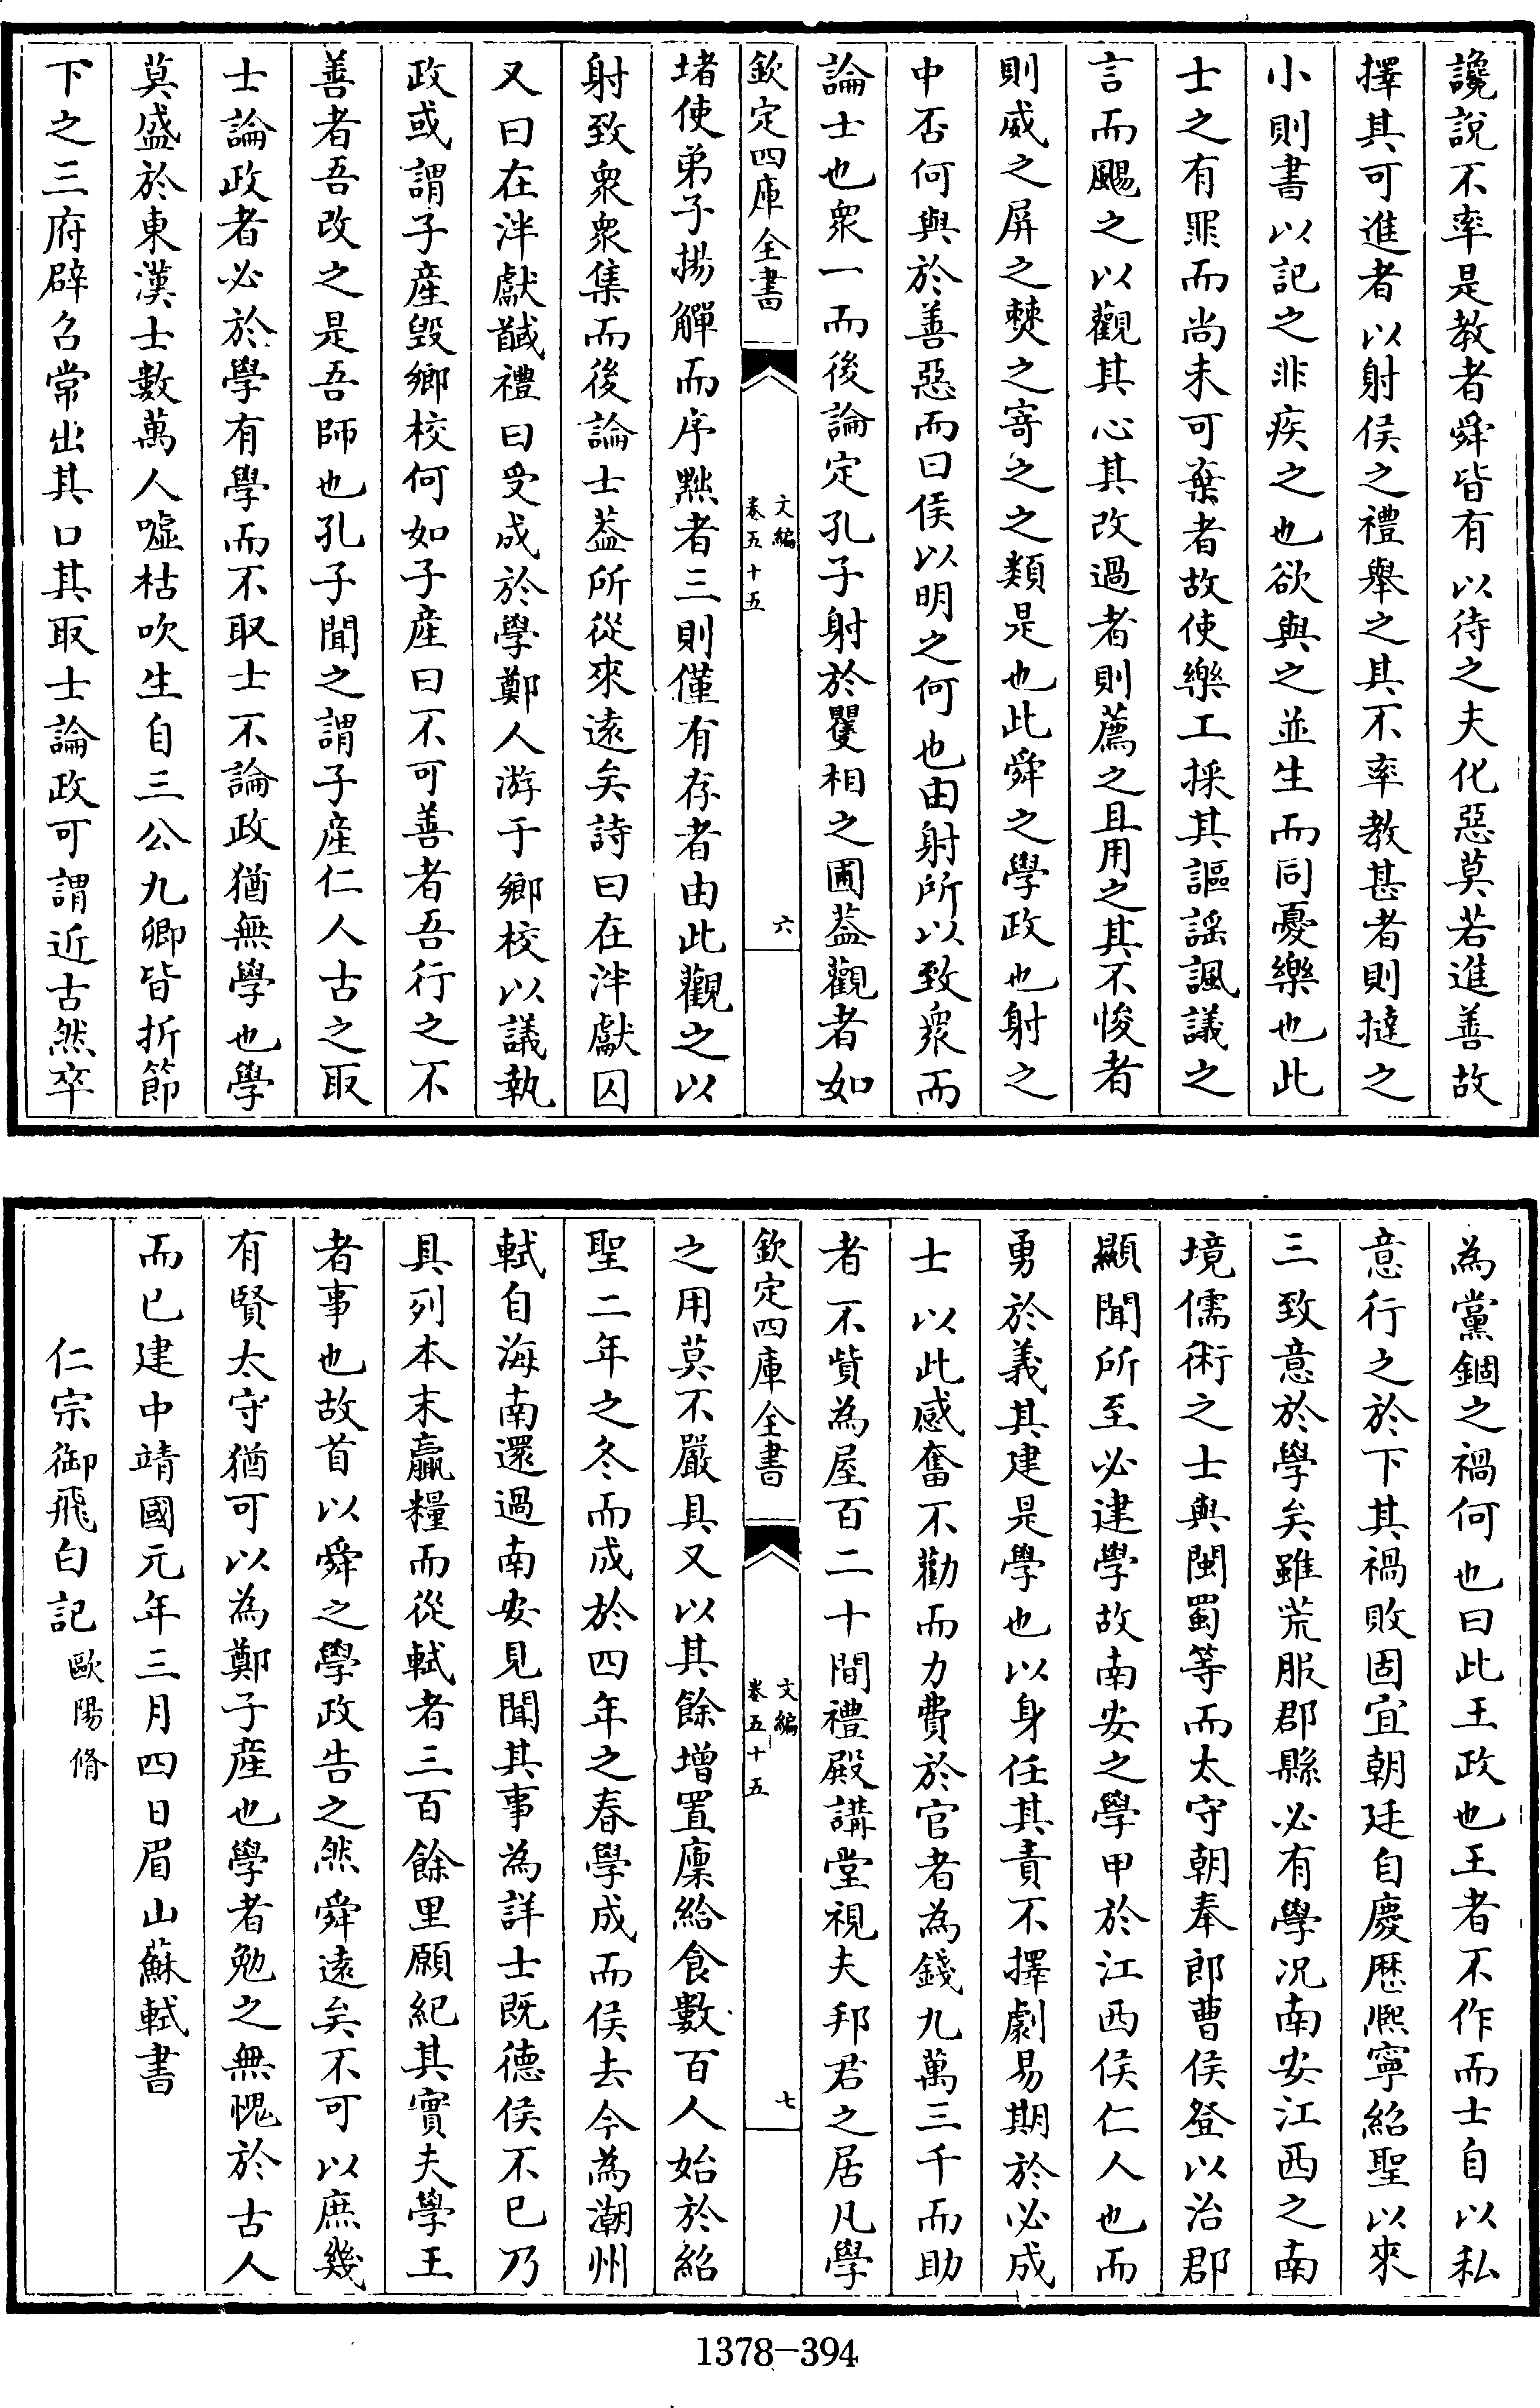 讒說不率是教者舜皆有以待之夫化惡莫若進善故
擇其可進者以射侯之禮舉之其不率教甚者則撻之
小則書以記之非疾之也欲與之並生而同憂樂也此
士之有罪而尚未可棄者故使樂工採其謳謡諷議之
言而颺之以觀其心其改過者則薦之且用之其不悛者
則威之屏之僰之寄之之類是也此舜之學政也射之
中否何與於善惡而曰侯以明之何也由射所以致衆而
論士也衆一而後論定孔子射於矍相之圃葢觀者如
欽定四庫全書
文編
卷五十五
六
堵使弟子揚觶而序㸃者三則僅有存者由此觀之以
射致衆衆集而後論士葢所從來逺矣詩曰在泮獻囚
又曰在泮獻馘禮曰受成於學鄭人游于鄉校以議執
政或謂子産毀鄉校何如子産曰不可善者吾行之不
善者吾改之是吾師也孔子聞之謂子産仁人古之取
士論政者必於學有學而不取士不論政猶無學也學
莫盛於東漢士數萬人噓枯吹生自三公九卿皆折節
下之三府辟召常出其口其取士論政可謂近古然卒
為黨錮之禍何也曰此王政也王者不作而士自以私
意行之於下其禍敗固宜朝廷自慶厯熈寧紹聖以來
三致意於學矣雖荒服郡縣必有學况南安江西之南
境儒術之士與閩蜀等而太守朝奉郎曹侯登以治郡
顯聞所至必建學故南安之學甲於江西侯仁人也而
勇於義其建是學也以身任其責不擇劇易期於必成
士以此感奮不勸而力費於官者為錢九萬三千而助
者不貲為屋百二十間禮殿講堂視夫邦君之居凡學
欽定四庫全書
文編
卷五十五
七
之用莫不嚴具又以其餘增置廩給食數百人始於紹
聖二年之冬而成於四年之春學成而侯去今為潮州
軾自海南還過南安見聞其事為詳士既德侯不已乃
具列本末贏糧而從軾者三百餘里願紀其實夫學王
者事也故首以舜之學政告之然舜逺矣不可以庶幾
有賢太守猶可以為鄭子産也學者勉之無愧於古人
而已建中靖國元年三月四日眉山蘇軾書
仁宗御飛白記 歐陽脩
1378-394